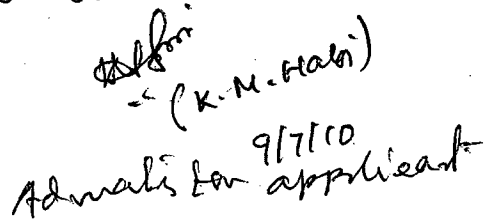 (K. M. Habi)
9/7/10
Advocate for applicant